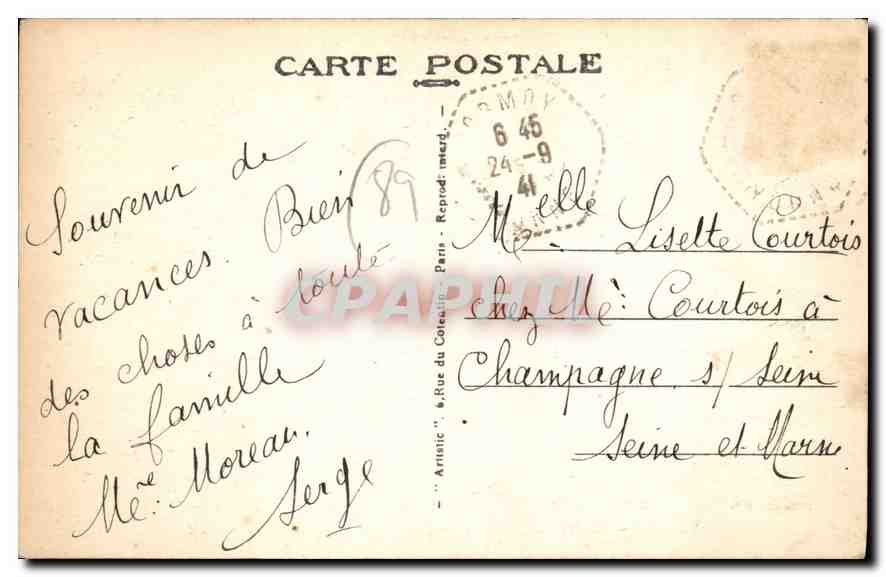 CARTE POSTALE
Souvenir de
vacances. Bien
des choses à toute
la famille
Mère Moreau.
Serge
89
"Artistic". 6, Rue du Cotentin - Paris - Reprod. interd.
6 45
24 -9
41
CPAPHIL
Melle Lisette Courtois
chez Me: Courtois à
Champagne s/ Seine
Seine et Marne